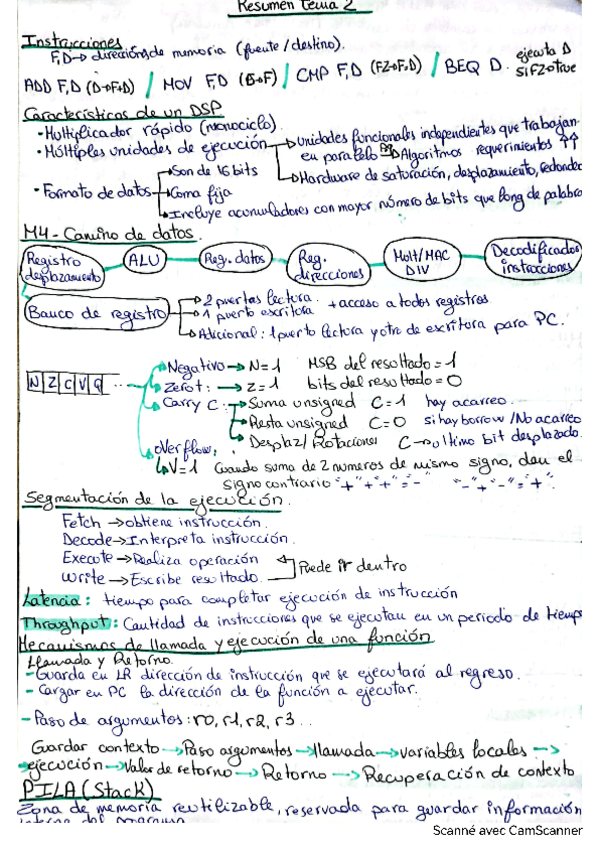 Resumen tema 2
Instrucciones
F,D → direcciones de memoria (fuente/destino).
ADD F,D (D→F+D) / MOV F,D (D→F) / CMP F,D (FZ→F-D) / BEQ D. ejecuta D si FZ=true
Características de un DSP
· Multiplicador rápido (monociclo).
· Múltiples unidades de ejecución → unidades funcionales independientes que trabajan
en paralelo → Algoritmos requerimientos ↑↑
→ Hardware de saturación, desplazamiento, redondeo
· Formato de datos → Son de 16 bits
→ Coma fija
→ Incluye acumuladores con mayor número de bits que long de palabra
M4 - Camino de datos.
Registro desplazamiento
ALU
Reg. datos
Reg. direcciones
Mult/MAC DIV
Decodificador instrucciones
Banco de registro → 2 puertas lectura. + acceso a todos registros
→ 1 puerto escritura
→ Adicional: 1 puerto lectura y otro de escritura para PC.
N Z C V Q ... → Negativo → N=1 MSB del resultado = 1
→ Zero: → Z=1 bits del resultado = 0
→ Carry C: → Suma unsigned C=1 hay acarreo.
→ Resta unsigned C=0 si hay borrow / No acarreo
→ Desplaz/Rotaciones C → ultimo bit desplazado.
→ Overflow,
↳ V=1 Cuando suma de 2 numeros de mismo signo, dan el
signo contrario "+"+"+"="-" "-"+"-"="+".
Segmentación de la ejecución.
Fetch → obtiene instrucción.
Decode → Interpreta instrucción.
Execute → Realiza operación
Write → Escribe resultado. Puede ir dentro
Latencia: tiempo para completar ejecución de instrucción
Throughput: Cantidad de instrucciones que se ejecutan en un periodo de tiempo
Mecanismos de llamada y ejecución de una función
Llamada y Retorno.
- Guarda en LR dirección de instrucción que se ejecutará al regreso.
- Cargar en PC la dirección de la función a ejecutar.
- Paso de argumentos: r0, r1, r2, r3 ..
Guardar contexto → Paso argumentos → llamada → variables locales →
→ ejecución → Valor de retorno → Retorno → Recuperación de contexto
PILA (Stack)
Zona de memoria reutilizable, reservada para guardar información
interna del programa
Scanné avec CamScanner